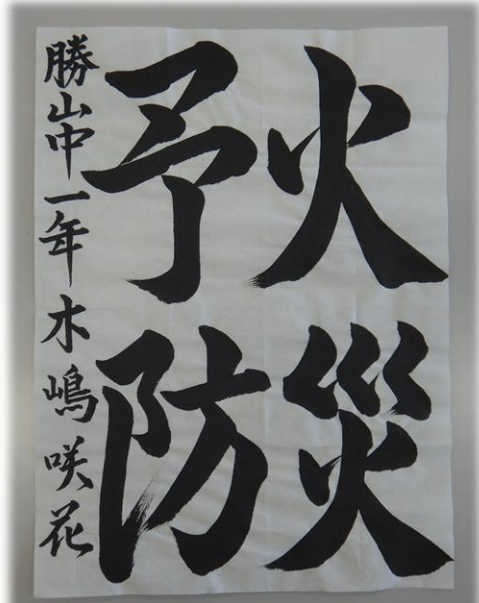 火災
予防
勝山中一年木嶋咲花